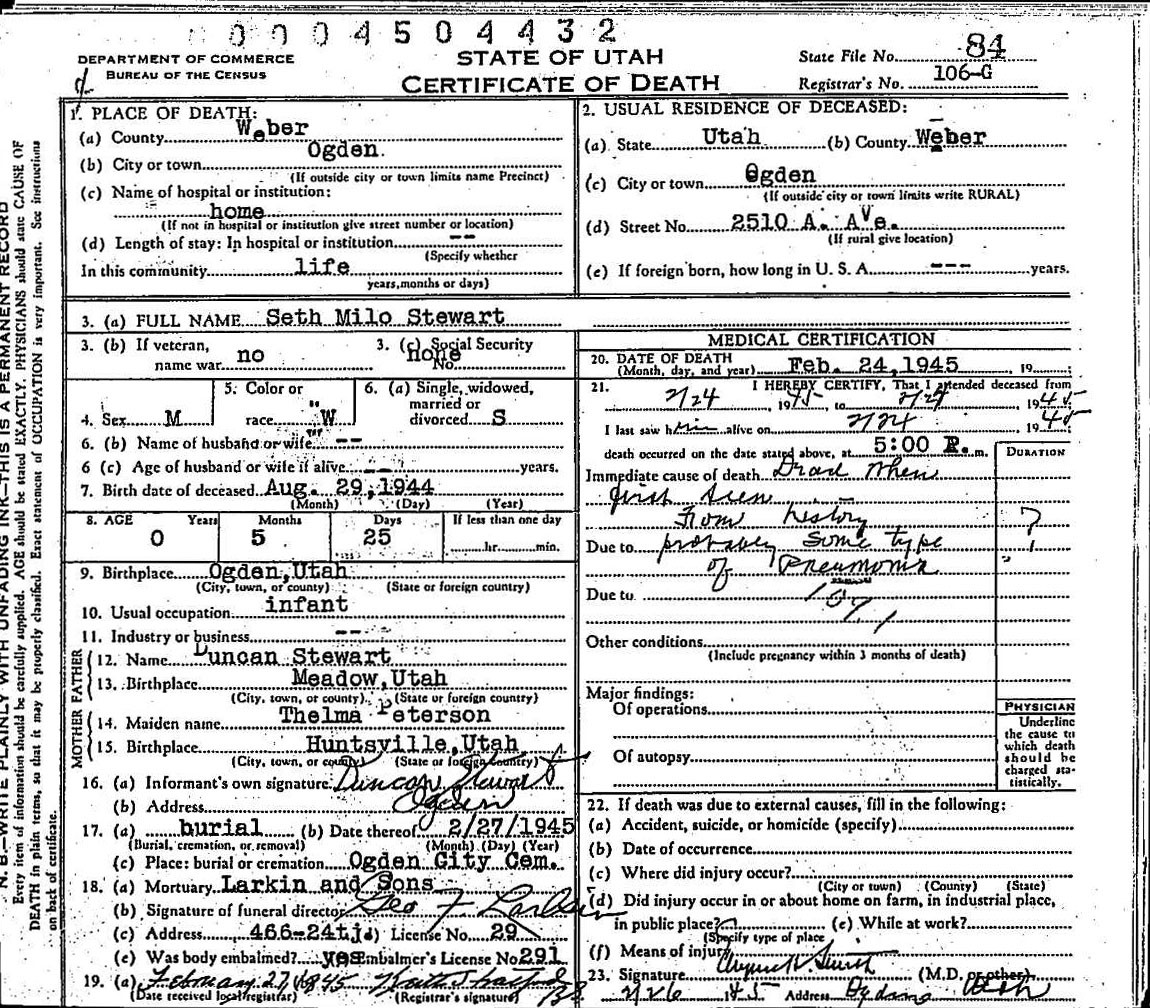 0 0 0 4 5 0 4 4 3 2
DEPARTMENT OF COMMERCE
BUREAU OF THE CENSUS
STATE OF UTAH
CERTIFICATE OF DEATH
State File No. 84
Registrar's No. 106-G
N. B.—WRITE PLAINLY WITH UNFADING INK—THIS IS A PERMANENT RECORD
Every item of information should be carefully supplied. AGE should be stated EXACTLY. PHYSICIANS should state CAUSE OF
DEATH in plain terms, so that it may be properly classified. Exact statement of OCCUPATION is very important. See instructions
on back of certificate.
1. PLACE OF DEATH:
(a) County Weber
(b) City or town Ogden
(If outside city or town limits name Precinct)
(c) Name of hospital or institution:
home
(If not in hospital or institution give street number or location)
(d) Length of stay: In hospital or institution --
(Specify whether
In this community life
years, months or days)
2. USUAL RESIDENCE OF DECEASED:
(a) State Utah (b) County Weber
(c) City or town Ogden
(If outside city or town limits write RURAL)
(d) Street No. 2510 A. Ave.
(If rural give location)
(e) If foreign born, how long in U. S. A. --- years.
3. (a) FULL NAME Seth Milo Stewart
3. (b) If veteran, name war no
3. (c) Social Security No. none
4. Sex M
5. Color or race W
6. (a) Single, widowed, married or divorced S
6. (b) Name of husband or wife --
6 (c) Age of husband or wife if alive -- years.
7. Birth date of deceased Aug. 29,1944
(Month) (Day) (Year)
8. AGE Years Months Days If less than one day
0 5 25 hr. min.
9. Birthplace Ogden,Utah
(City, town, or county) (State or foreign country)
10. Usual occupation infant
11. Industry or business --
FATHER
12. Name Duncan Stewart
13. Birthplace Meadow,Utah
(City, town, or county) (State or foreign country)
MOTHER
14. Maiden name Thelma Peterson
15. Birthplace Huntsville,Utah
(City, town, or county) (State or foreign country)
16. (a) Informant's own signature Duncan Stewart
(b) Address Ogden
17. (a) burial (b) Date thereof 2/27/1945
(Burial, cremation, or removal) (Month) (Day) (Year)
(c) Place: burial or cremation Ogden City Cem.
18. (a) Mortuary Larkin and Sons
(b) Signature of funeral director Geo F Larkin
(c) Address 466-24th (d) License No. 29
(e) Was body embalmed? yes Embalmer's License No 291
19. (a) February 27, 1945
(Date received local registrar) (Registrar's signature)
MEDICAL CERTIFICATION
20. DATE OF DEATH
(Month, day, and year) Feb. 24,1945 , 19
21. I HEREBY CERTIFY, That I attended deceased from
2/24, 1945, to 2/24 1945
I last saw him alive on 2/24 1945
death occurred on the date stated above, at 5:00 P. m.
DURATION
Immediate cause of death Dead when
first seen
From history ?
Due to probably some type
of Pneumonia
Due to 109.1
Other conditions
(Include pregnancy within 3 months of death)
Major findings:
Of operations
Of autopsy
PHYSICIAN
Underline
the cause to
which death
should be
charged sta-
tistically.
22. If death was due to external causes, fill in the following:
(a) Accident, suicide, or homicide (specify)
(b) Date of occurrence
(c) Where did injury occur?
(City or town) (County) (State)
(d) Did injury occur in or about home on farm, in industrial place,
in public place? (e) While at work?
(Specify type of place
(f) Means of injury
23. Signature Smith (M.D. or other)
2/26 1945 Address Ogden Utah